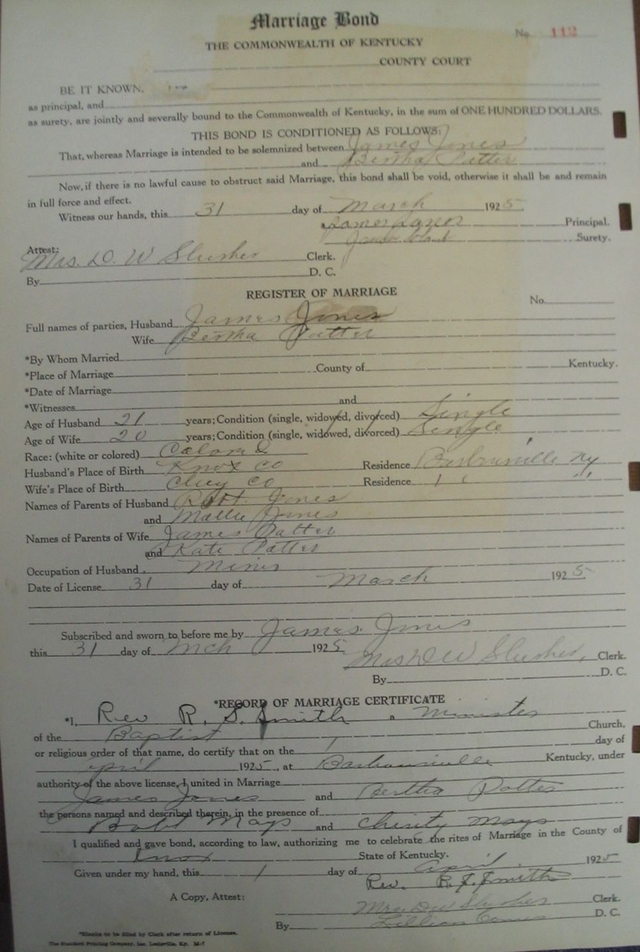 Marriage Bond
No. 112
THE COMMONWEALTH OF KENTUCKY
COUNTY COURT
BE IT KNOWN,
as principal, and
as surety, are jointly and severally bound to the Commonwealth of Kentucky, in the sum of ONE HUNDRED DOLLARS.
THIS BOND IS CONDITIONED AS FOLLOWS:
That, whereas Marriage is intended to be solemnized between James Jones
and Bertha Patter
Now, if there is no lawful cause to obstruct said Marriage, this bond shall be void, otherwise it shall be and remain
in full force and effect.
Witness our hands, this 31 day of March 1925
Principal.
Surety.
Attest:
Mrs. D. W Slusher Clerk.
By D. C.
REGISTER OF MARRIAGE
No.
Full names of parties, Husband James Jones
Wife Bertha Patter
*By Whom Married
*Place of Marriage County of Kentucky.
*Date of Marriage
*Witnesses and
Age of Husband 21 years; Condition (single, widowed, divorced) Single
Age of Wife 20 years; Condition (single, widowed, divorced) Single
Race: (white or colored) Colored
Husband's Place of Birth Knox Co Residence Barbourville Ky
Wife's Place of Birth Clay Co Residence " "
Names of Parents of Husband Robt Jones
and Mallie Jones
Names of Parents of Wife James Patter
and Kate Patter
Occupation of Husband Miner
Date of License 31 day of March 1925
Subscribed and sworn to before me by James Jones
this 31 day of Mch 1925
Mrs D W Slusher, Clerk.
By D. C.
*RECORD OF MARRIAGE CERTIFICATE
*I, Rev R. S. Smith a Minister
of the Baptist Church,
or religious order of that name, do certify that on the 1 day of
April 1925, at Barbourville Kentucky, under
authority of the above license, I united in Marriage
James Jones and Bertha Patter
the persons named and described therein, in the presence of
Mays and Christy Mays
I qualified and gave bond, according to law, authorizing me to celebrate the rites of Marriage in the County of
Knox State of Kentucky.
Given under my hand, this 1 day of April 1925
Rev. R. S. Smith
A Copy, Attest: Mrs D W Slusher Clerk.
By Lillian D. C.
*Blanks to be filled by Clerk after return of License.
The Standard Printing Company, Inc. Louisville, Ky. M-7